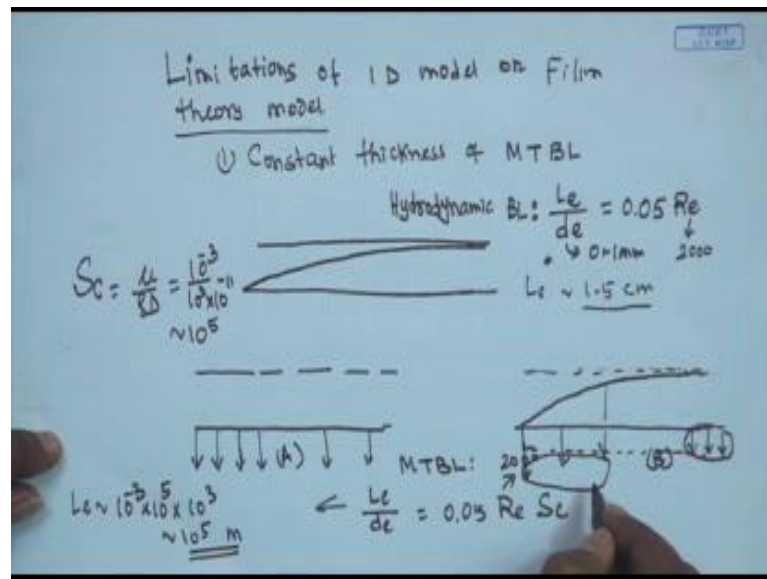 Limitations of 1D model or Film
theory model
① Constant thickness of MTBL
Hydrodynamic BL: Le/de = 0.05 Re
2000
Le ~ 1.5 cm
Sc = μ/ρD = 10⁻³/10³x10⁻¹¹
~10⁵
(A)
MTBL:
20
(B)
Le ~ 10⁻³x10⁵x10³
~10⁵ m
← Le/de = 0.05 Re Sc